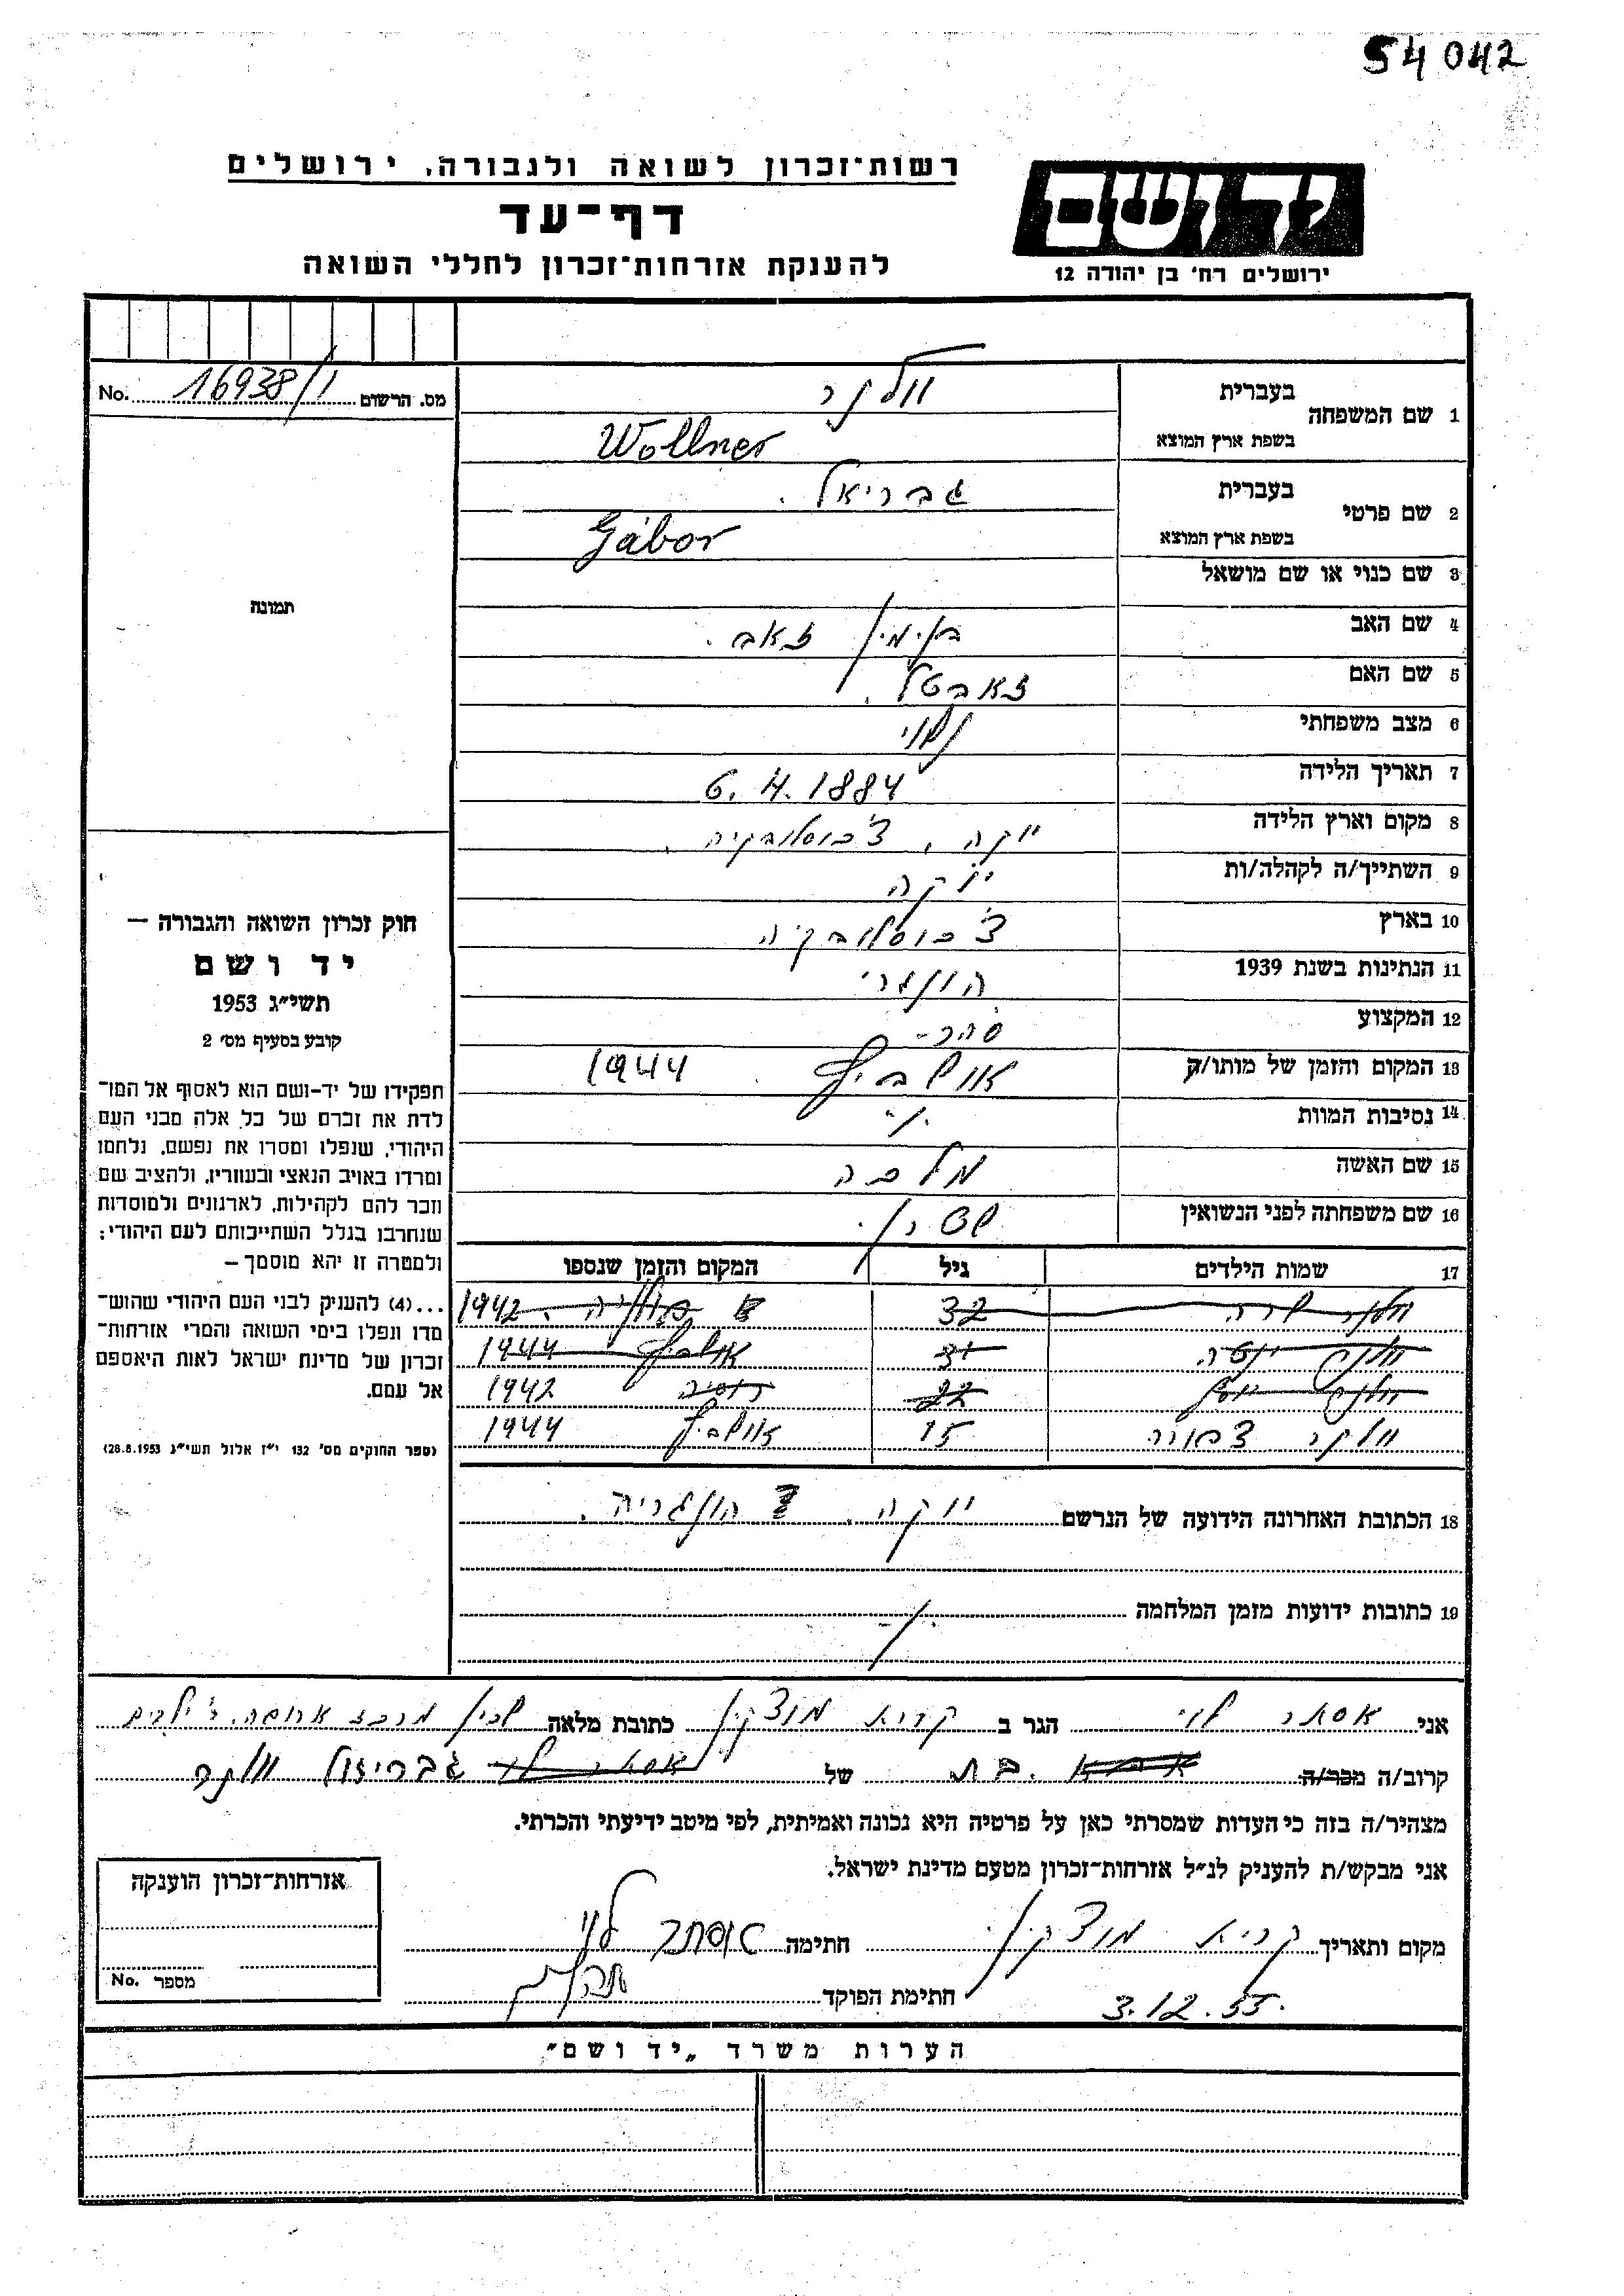 54042
רשות־זכרון לשואה ולגבורה, ירושלים
דף־עד
להענקת אזרחות־זכרון לחללי השואה
יד ושם
ירושלים רח׳ בן יהודה 12
מס. הרשום 16938/1 No.
תמונה
חוק זכרון השואה והגבורה —
יד ושם
תשי״ג 1953
קובע בסעיף מס׳ 2
תפקידו של יד-ושם הוא לאסוף אל המו־
לדת את זכרם של כל אלה מבני העם
היהודי, שנפלו ומסרו את נפשם, נלחמו
ומרדו באויב הנאצי ובעוזריו, ולהציב שם
וזכר להם לקהילות, לארגונים ולמוסדות
שנחרבו בגלל השתייכותם לעם היהודי;
ולמטרה זו יהא מוסמך —
...(4) להעניק לבני העם היהודי שהוש־
מדו ונפלו בימי השואה והמרי אזרחות־
זכרון של מדינת ישראל לאות היאספם
אל עמם.
(ספר החוקים מס׳ 132 י״ז אלול תשי״ג 28.8.1953)
1 שם המשפחה בעברית וולנר
בשפת ארץ המוצא Wollner
2 שם פרטי בעברית גבריאל
בשפת ארץ המוצא Gábor
3 שם כנוי או שם מושאל
4 שם האב בנימין זאב
5 שם האם
6 מצב משפחתי נשוי
7 תאריך הלידה 6.4.1884
8 מקום וארץ הלידה יוקה, צ׳כוסלובקיה
9 השתייך/ה לקהלה/ות יוקה
10 בארץ צ׳כוסלובקיה
11 הנתינות בשנת 1939 הונגרי
12 המקצוע סוחר
13 המקום והזמן של מותו/ה אושביץ 1944
14 נסיבות המוות
15 שם האשה מלכה
16 שם משפחתה לפני הנשואין
17 שמות הילדים גיל המקום והזמן שנספו
וולנר שרה 32 פולניה 1942
וולנר יוטה 31 אושביץ 1944
וולנר יוסף 22 רוסיה 1942
וולנר צפורה 15 אושביץ 1944
18 הכתובת האחרונה הידועה של הנרשם יוקה. הונגריה.
19 כתובות ידועות מזמן המלחמה
אני אסתר לוי הגר ב קרית מוצקין כתובת מלאה שכון מרכז
קרוב/ה מכר/ה בת של גבריאל וולנר
מצהיר/ה בזה כי העדות שמסרתי כאן על פרטיה היא נכונה ואמיתית, לפי מיטב ידיעתי והכרתי.
אני מבקש/ת להעניק לנ״ל אזרחות־זכרון מטעם מדינת ישראל.
מקום ותאריך קרית מוצקין חתימה אסתר לוי
3.12.55 חתימת הפוקד
אזרחות־זכרון הוענקה
מספר No.
הערות משרד „יד ושם״